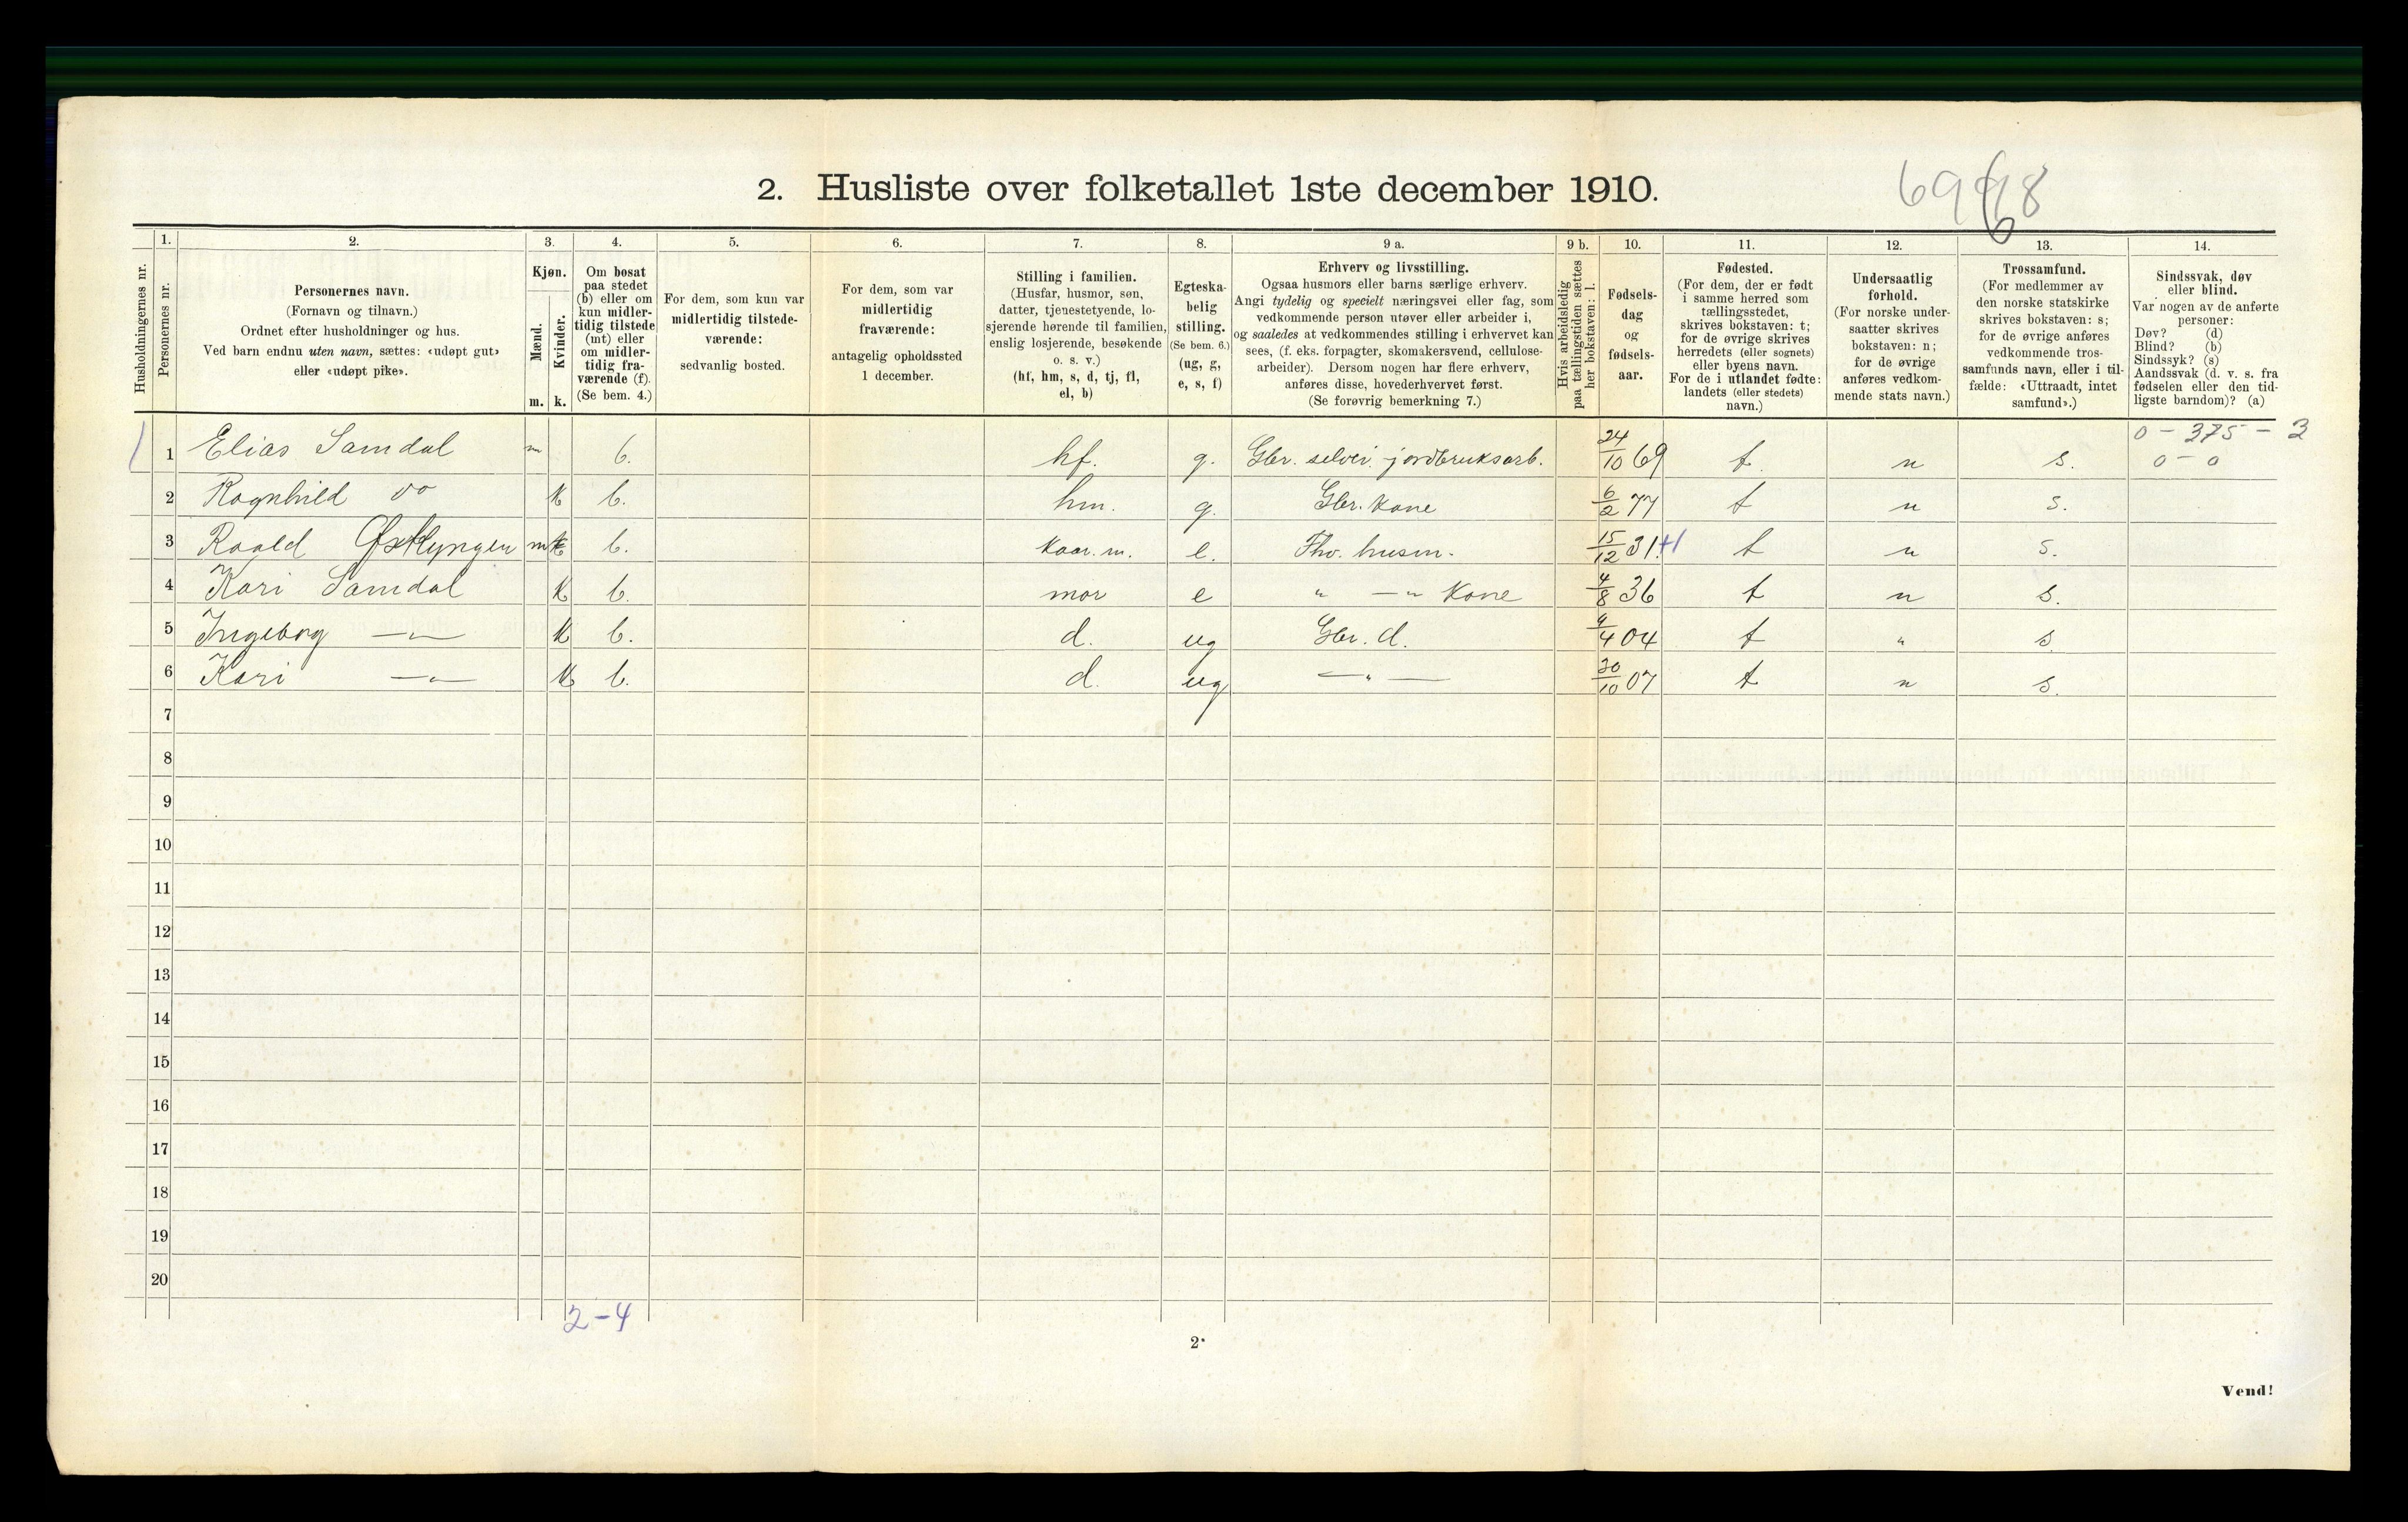 2. Husliste over folketallet 1ste december 1910.
Husholdningernes nr.
1.
Personernes nr.
2.
Personernes navn.
(Fornavn og tilnavn.)
Ordnet efter husholdninger og hus.
Ved barn endnu uten navn, sættes: «udøpt gut»
eller «udøpt pike».
3.
Kjøn.
Mænd.
Kvinder.
m. k.
4.
Om bosat
paa stedet
(b) eller om
kun midler-
tidig tilstede
(mt) eller
om midler-
tidig fra-
værende (f).
(Se bem. 4.)
5.
For dem, som kun var
midlertidig tilstede-
værende:
sedvanlig bosted.
6.
For dem, som var
midlertidig
fraværende:
antagelig opholdssted
1 december.
7.
Stilling i familien.
(Husfar, husmor, søn,
datter, tjenestetyende, lo-
sjerende hørende til familien,
enslig losjerende, besøkende
o. s. v.)
(hf, hm, s, d, tj, fl,
el, b)
8.
Egteska-
belig
stilling.
(Se bem. 6.)
(ug, g,
e, s, f)
9 a.
Erhverv og livsstilling.
Ogsaa husmors eller barns særlige erhverv.
Angi tydelig og specielt næringsvei eller fag, som
vedkommende person utøver eller arbeider i,
og saaledes at vedkommendes stilling i erhvervet kan
sees, (f. eks. forpagter, skomakersvend, cellulose-
arbeider). Dersom nogen har flere erhverv,
anføres disse, hovederhvervet først.
(Se forøvrig bemerkning 7.)
9 b.
Hvis arbeidsledig
paa tællingstiden sættes
her bokstaven: l.
10.
Fødsels-
dag
og
fødsels-
aar.
11.
Fødested.
(For dem, der er født
i samme herred som
tællingsstedet,
skrives bokstaven: t;
for de øvrige skrives
herredets (eller sognets)
eller byens navn.
For de i utlandet fødte:
landets (eller stedets)
navn.)
12.
Undersaatlig
forhold.
(For norske under-
saatter skrives
bokstaven: n;
for de øvrige
anføres vedkom-
mende stats navn.)
13.
Trossamfund.
(For medlemmer av
den norske statskirke
skrives bokstaven: s;
for de øvrige anføres
vedkommende tros-
samfunds navn, eller i til-
fælde: «Uttraadt, intet
samfund».)
14.
Sindssvak, døv
eller blind.
Var nogen av de anførte
personer:
Døv? (d)
Blind? (b)
Sindssyk? (s)
Aandssvak (d. v. s. fra
fødselen eller den tid-
ligste barndom)? (a)
0 - 375 - 3
1 1 Elias Samdal m b. hf. g. Gbr. selvei. jordbruksarb. 24/10 69 t. n s. 0 - 0
2 Ragnhild do k b. hm. g. Gbr. kone 6/2 77 t n s.
3 Roald m b. kaar. m. e. Fhv. husm. 15/12 31 +1 t n s.
4 Kari Samdal k b. mor e " — " kone 4/8 36 t n s.
5 Ingeborg —"— k b. d. ug Gbr. d. 9/4 04 t " s.
6 Kari —"— k b. d. ug —"— 30/10 07 t n s.
7
8
9
10
11
12
13
14
15
16
17
18
19
20
2-4
2*
Vend!